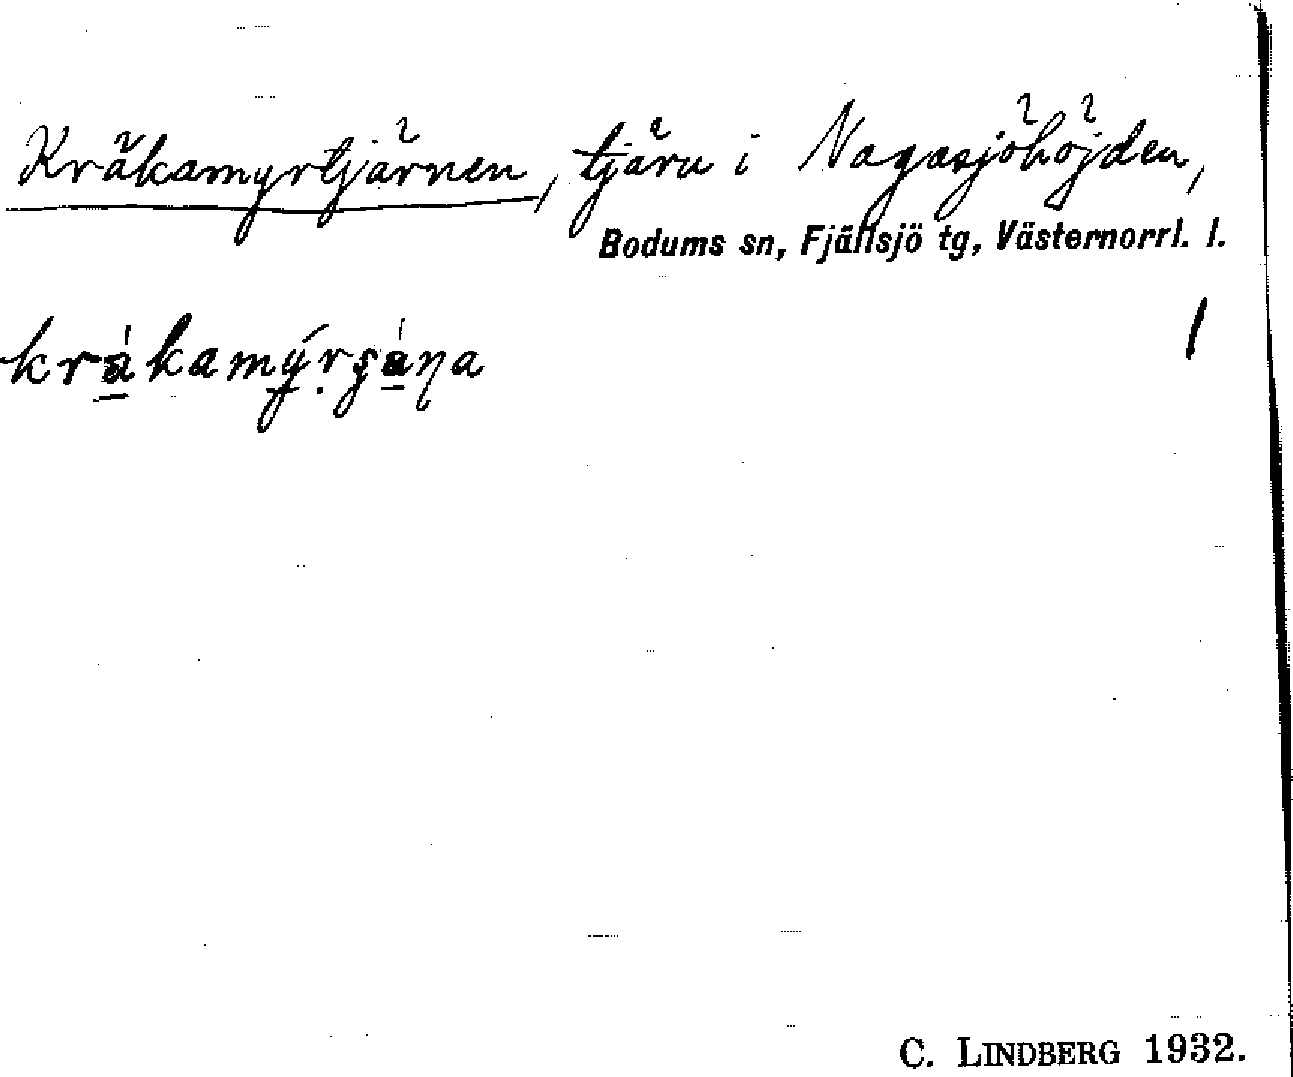 Kråkamyrtjärnen, tjärn i Nagasjöhöjden,
Bodums sn, Fjällsjö tg, Västernorrl. l.
C. LINDBERG 1932.